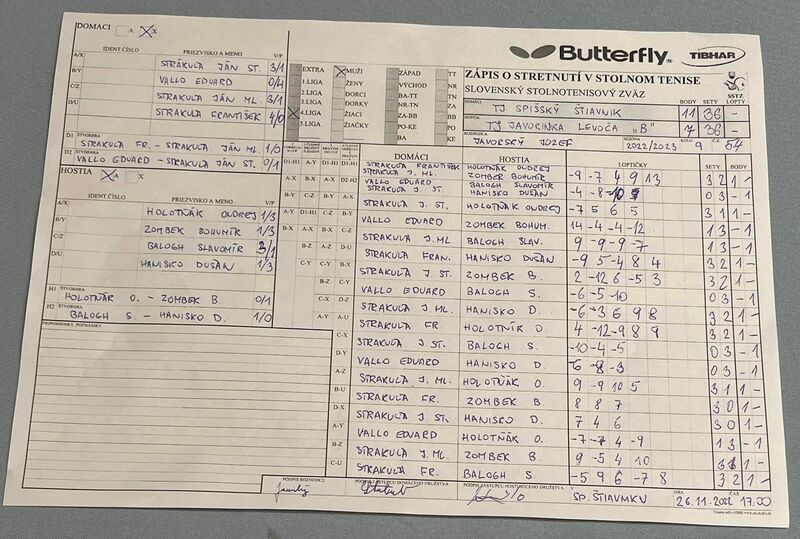 DOMÁCI A X X
IDENT ČÍSLO PRIEZVISKO A MENO V/P
A/X STRAKUĽA JÁN ST. 3/1
B/Y VALLO EDUARD 0/4
C/Z STRAKUĽA JÁN ML. 3/1
D/U STRAKUĽA FRANTIŠEK 4/0
D1 ŠTVORHRA
STRAKUĽA FR. - STRAKUĽA JÁN ML. 1/0
D2 ŠTVORHRA
VALLO EDUARD - STRAKUĽA JÁN ST. 0/1
HOSTIA A X X
IDENT. ČÍSLO PRIEZVISKO A MENO V/P
A/X HOLOTŇÁK ONDREJ 1/3
B/Y ZOMBEK BOHUMÍR 1/3
C/Z BALOGH SLAVOMÍR 3/1
D/U HANISKO DUŠAN 1/3
H1 ŠTVORHRA
HOLOTŇÁR O. - ZOMBEK B 0/1
H2 ŠTVORHRA
BALOGH S - HANISKO D. 1/0
PRIPOMIENKY, POZNÁMKY
EXTRA MUŽI ZÁPAD TT
1.LIGA ŽENY VÝCHOD NR
2.LIGA DORCI BA-TT TN
3.LIGA DORKY NR-TN ZA
4.LIGA ŽIACI ZA-BB BB
5.LIGA ŽIAČKY PO-KE PO
BA KE
Butterfly TIBHAR
ZÁPIS O STRETNUTÍ V STOLNOM TENISE
SLOVENSKÝ STOLNOTENISOVÝ ZVÄZ
SSTZ
DOMÁCI TJ SPIŠSKÝ ŠTIAVNIK BODY 11 SETY 36 LOPTY
HOSTIA TJ JAVORINKA LEVOČA "B" 7 36
ROZHODCA JAVORSKÝ JOZEF SEZÓNA 2022/2023 KOLO 9 Č.Z. 54
DOMÁCI HOSTIA LOPTIČKY SETY BODY
D1-H1 A-Y D1-H1 STRAKUĽA FRANTIŠEK STRAKUĽA J. ML. HOLOTŇÁK ONDREJ ZOMBEK BOHUMÍR -9 -7 4 9 13 3 2 1 -
VALLO EDUARD STRAKUĽA J. ST BALOGH SLAVOMÍR HANISKO DUŠAN 0 3 - 1
STRAKUĽA J. ST. HOLOTŇÁK ONDREJ -7 5 6 5 3 1 1 -
VALLO EDUARD ZOMBEK BOHUM. 14 -4 -4 -12 1 3 - 1
STRAKUĽA J. ML BALOGH SLAV. 9 -9 -9 -7 1 3 - 1
STRAKUĽA FRAN. HANISKO DUŠAN -9 5 -4 8 4 3 2 1 -
STRAKUĽA J. ST. ZOMBEK B. 2 -12 6 -5 3 3 2 1 -
VALLO EDUARD BALOGH S. -6 -5 -10 0 3 - 1
STRAKUĽA J. ML. HANISKO D. -6 -3 6 9 8 3 2 1 -
STRAKUĽA FR. HOLOTŇÍR O. 4 -12 -9 8 9 3 2 1 -
C-X STRAKUĽA J. ST. BALOGH S. -10 -4 -5 0 3 - 1
D-Y VALLO EDUARD HANISKO D. -6 -8 -3 0 3 - 1
A-Z STRAKUĽA J. ML. HOLOTŇÁK O. 9 -9 10 5 3 1 1 -
B-U STRAKUĽA FR. ZOMBEK B. 8 8 7 3 0 1 -
D-X STRAKUĽA J. ST. HANISKO D. 7 4 6 3 0 1 -
A-Y VALLO EDUARD HOLOTŇÁK O. -7 -7 4 -9 1 3 - 1
B-Z STRAKUĽA J. ML. ZOMBEK B. 9 -5 4 10 3 1 1 -
C-U STRAKUĽA FR. BALOGH S. -5 9 6 -7 8 3 2 1 -
PODPIS ROZHODCU PODPIS ZÁSTUPCU DOMÁCEHO DRUŽSTVA PODPIS ZÁSTUPCU HOSTUJÚCEHO DRUŽSTVA V SP. ŠTIAVNIKU DŇA 26.11.2022 ČAS 17.00